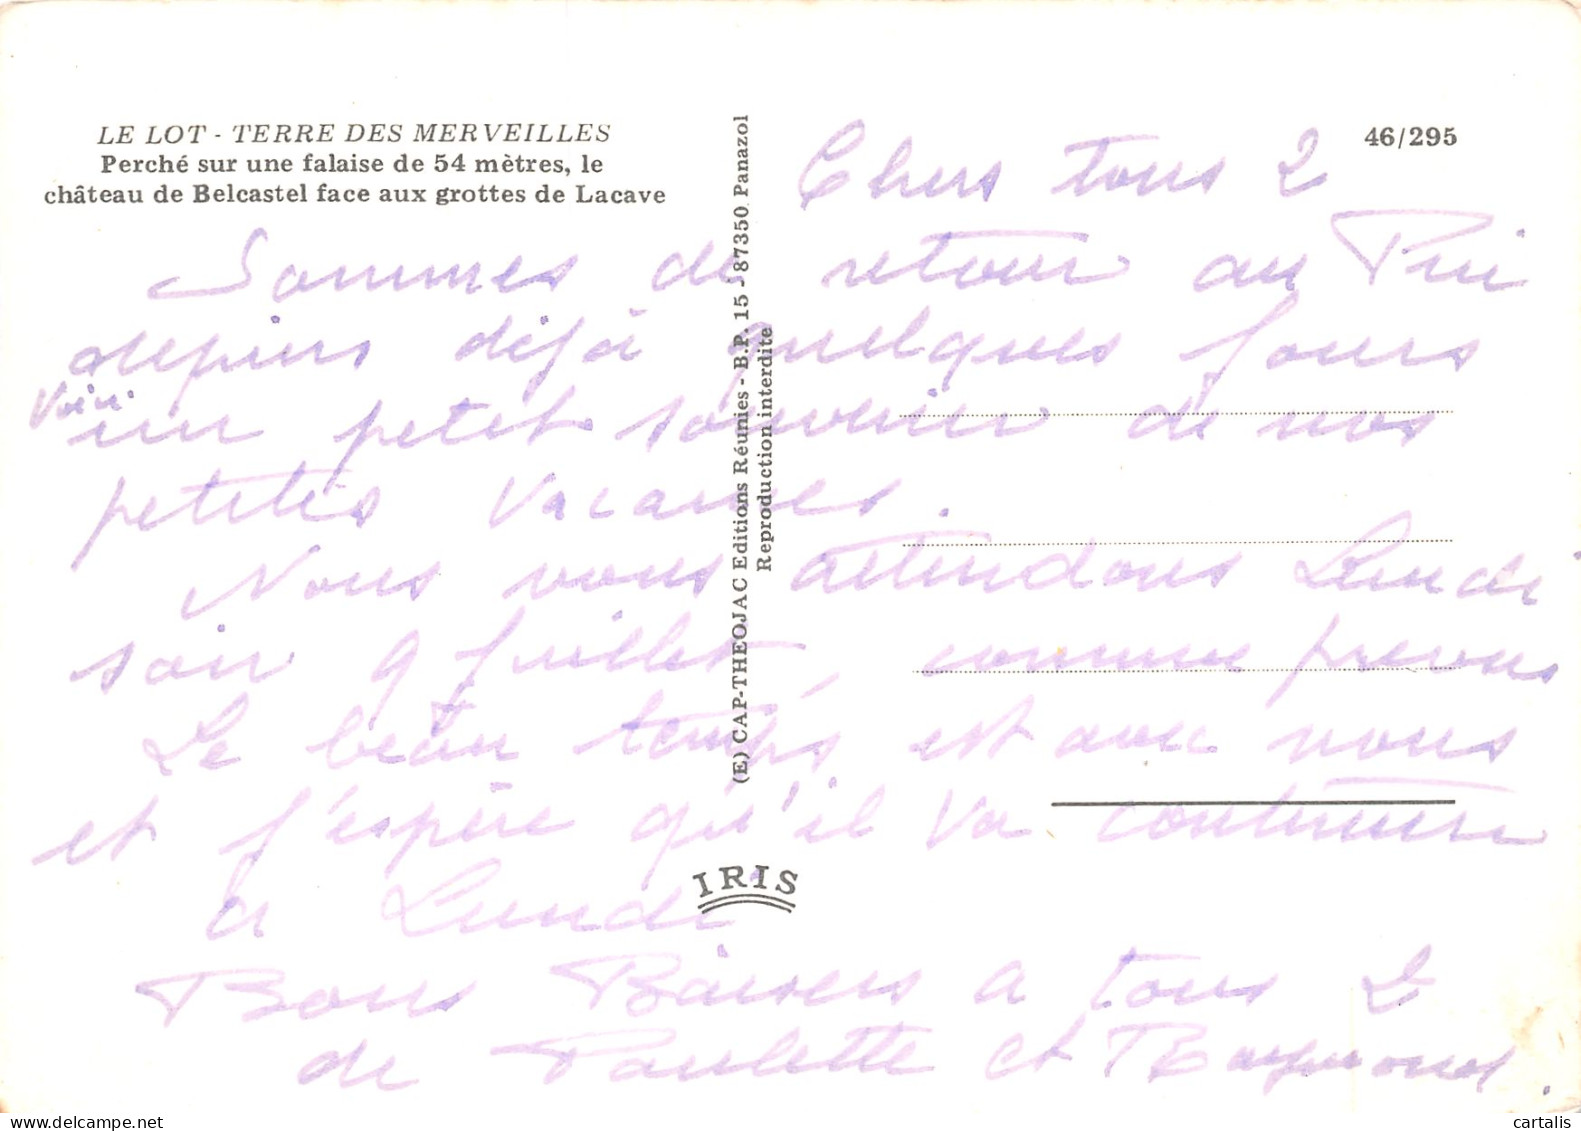 LE LOT - TERRE DES MERVEILLES
Perché sur une falaise de 54 mètres, le
château de Belcastel face aux grottes de Lacave
46/295
(E) CAP-THEOJAC Editions Réunies - B.P. 15 - 87350 Panazol
Reproduction interdite
IRIS
Chers tous 2
Sommes de retour au Pin
depuis déjà quelques jours
Voici
un petit souvenir de nos
petites vacances.
Nous vous attendons Lundi
soir 9 Juillet, comme prevus
Le beau temps est avec nous
et j'espère qu'il va continuer
à Lundi
Bons Baisers a tous 2
de Paulette et Raymond.
cartalis